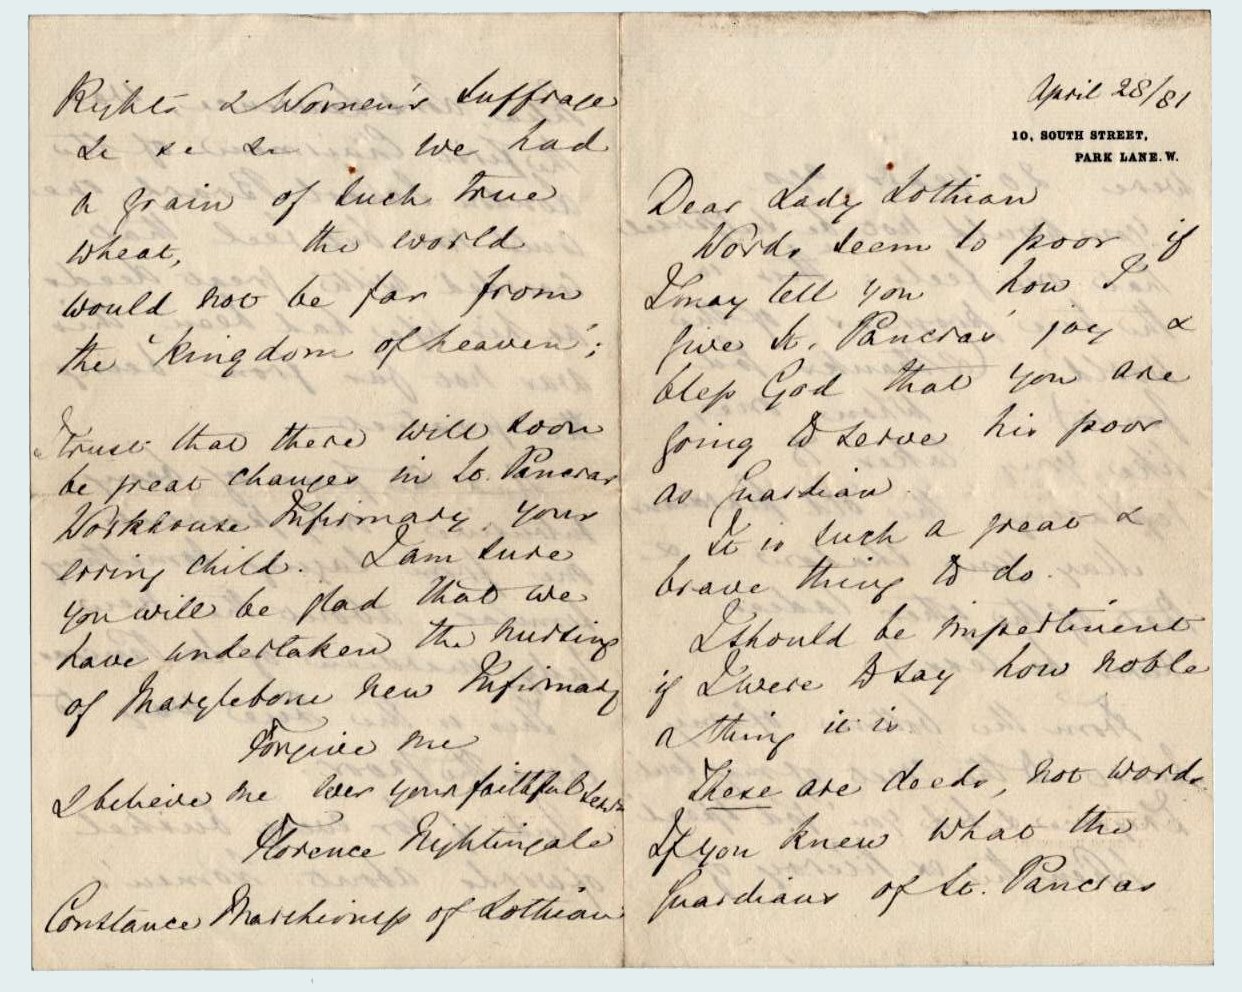 April 28/81
10, SOUTH STREET,
PARK LANE. W.
Dear Lady Lothian
Words seem so poor if
I may tell you how I
give St. Pancras' joy &
bless God that you are
going to serve his poor
as Guardian.
It is such a great &
brave thing to do.
I should be impertinent
if I were to say how noble
a thing it is
These are deeds, not words.
If you knew what the
Guardians of St. Pancras
Rights & Women's Suffrage
&c &c &c we had
a grain of such true
wheat, the world
would not be far from
the 'kingdom of heaven';
I trust that there will soon
be great changes in St. Pancras
Workhouse Infirmary, your
erring child. I am sure
you will be glad that we
have undertaken the nursing
of Marylebone New Infirmary
Forgive me
& believe me ever your faithful serv
Florence Nightingale
Constance Marchioness of Lothian